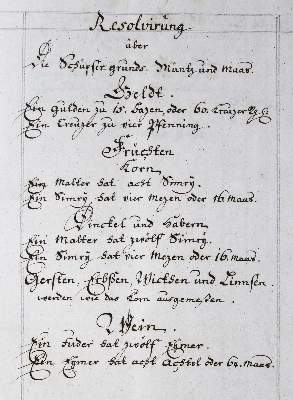 Resolvirung
über
Die Schupfer grunds. Müntz und Maas.
Geldt.
Ein Gulden zu 15. bazen, oder 60. Kreüzer
Ein Creuzer zu vier Pfenning.
Früchten
Korn
Ein Malter hat acht Simry.
Ein Simry hat vier Mezen oder 16 maas.
Dinckel und Habern
Ein Malter hat zwölf Simry.
Ein Simry hat vier Mezen oder 16. maas.
Gersten, Erbßen, Wickhen und Linnsen.
werden wie das Korn ausgemeßen.
Wein.
Ein fuder hat zwölf Eymer.
Ein Eymer hat acht Achtel oder 64. maas.